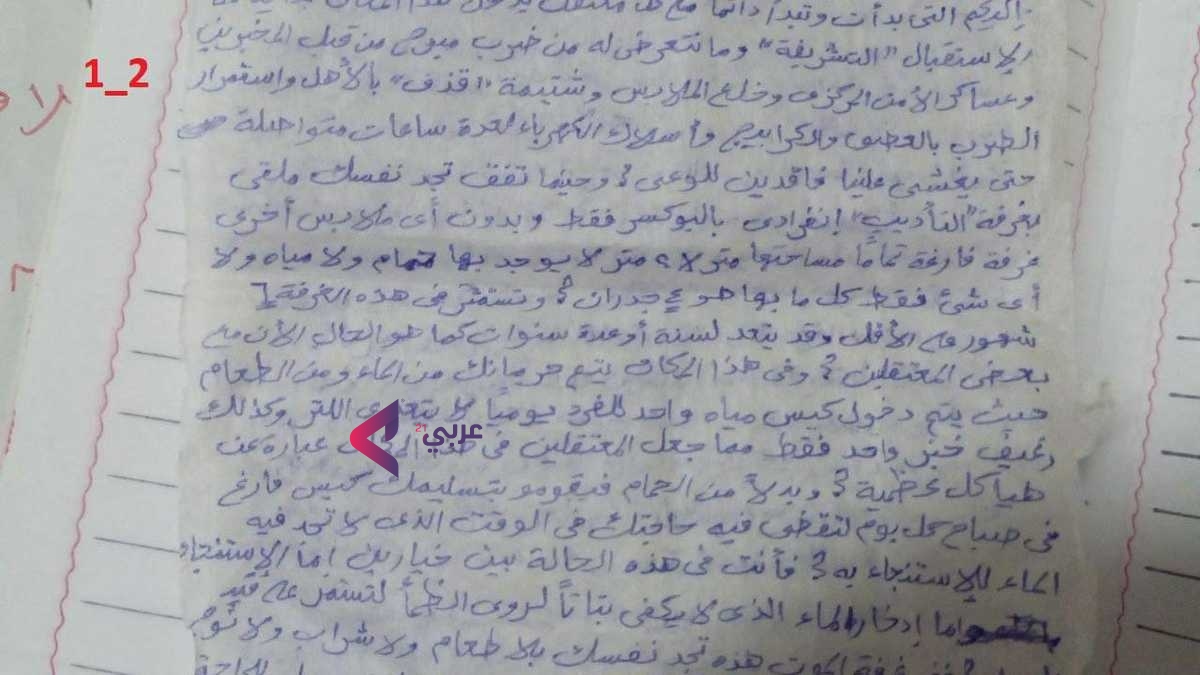 1_2
التى بدأت وتبدأ دائما مع
الإستقبال "التشريفة" وما نتعرض له من ضرب مبرح من قبل المخبرين
وعساكر الأمن المركزى وخلع الملابس وشتيمة "قذف" بالأهل واستمرار
الضرب بالعصى والكرابيج وأسلاك الكهرباء لعدة ساعات متواصلة
حتى يغشى علينا فاقدين للوعى؟ وحينما تفق تجد نفسك ملقى
بغرفة "التأديب" إنفرادى بالبوكسر فقط وبدون أى ملابس أخرى
غرفة فارغة تمامًا مساحتها متر لا يوجد بها حمام ولا مياه ولا
أى شئ فقط كل ما بها هو ٤ جدران؟ وتستمر فى هذه الغرفة
شهور على الأقل وقد يتعد لسنة أو عدة سنوات كما هو الحال الأن مع
بعض المعتقلين؟ وفى هذا المكان يتم حرمانك من الماء ومن الطعام
حيث يتم دخول كيس مياه واحد للفرد يوميًا لا يتعدى اللتر وكذلك
رغيف خبز واحد فقط مما جعل المعتقلين فى هذا عبارة عن
هياكل عظمية؟ وبدلاً من الحمام فيقومو بتسليمك كيس فارغ
فى صباح كل يوم لتقضى فيه حاجتك فى الوقت الذى لا تجد فيه
الماء للإستنجاء به؟ فأنت فى هذه الحالة بين خيارين إما الإستنجاء
وإما إدخار الماء الذى لا يكفى بتاتاً لروى الظمأ لتستمر على قيد
الموت هذه تجد نفسك بلا طعام ولا شراب ولا
عربي21